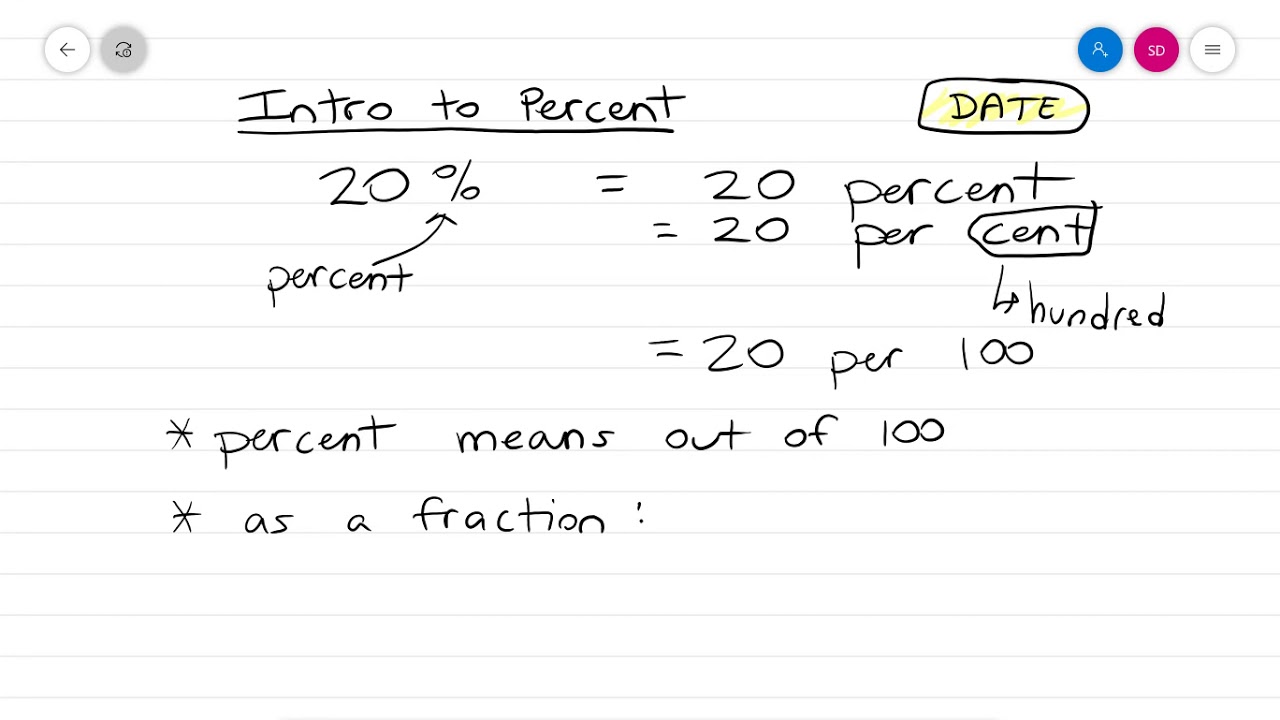 SD
Intro to Percent
DATE
20 % = 20 percent
= 20 per cent
percent
hundred
= 20 per 100
* percent means out of 100
* as a fraction :